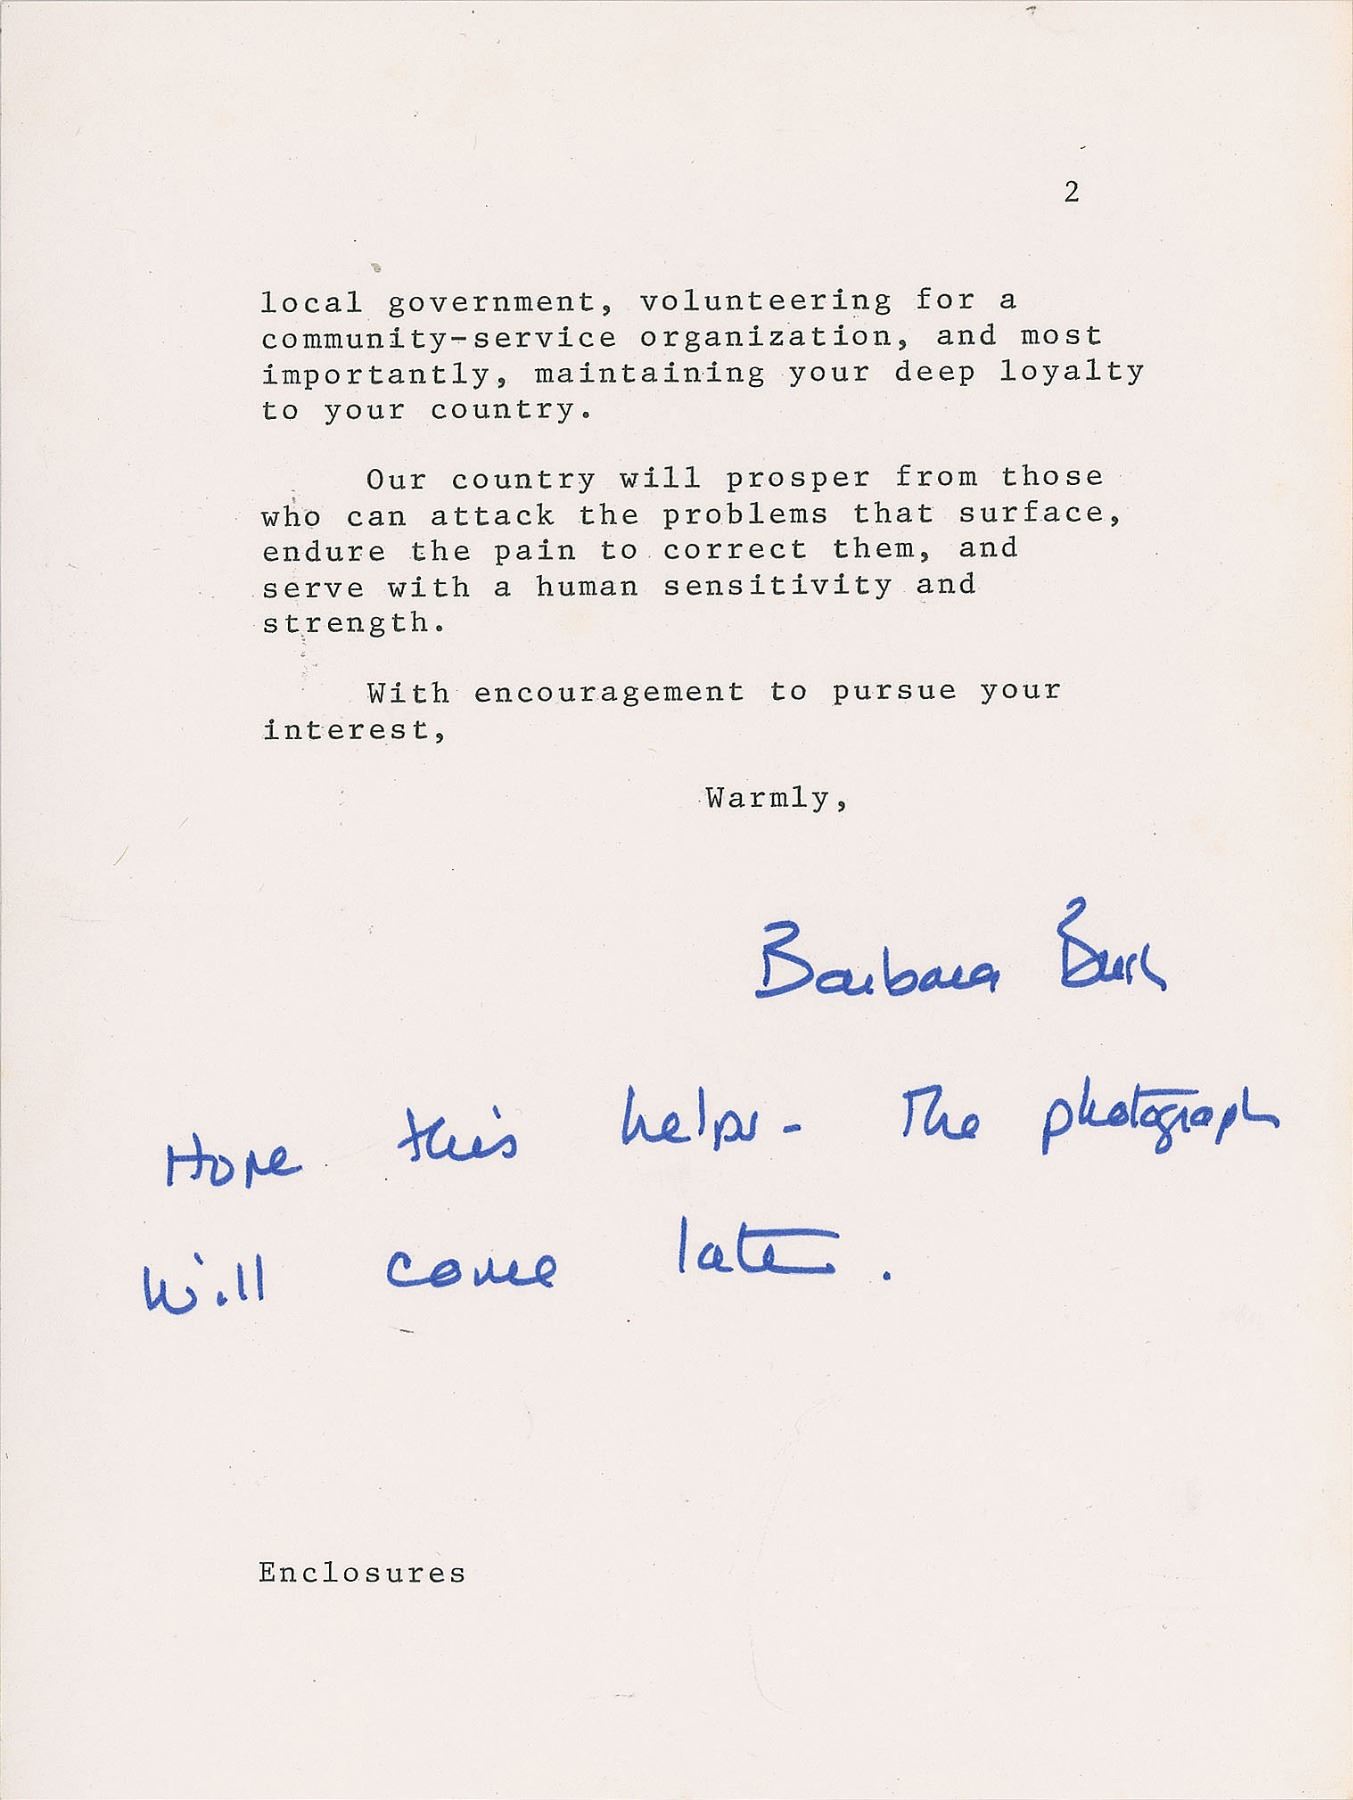 2
local government, volunteering for a
community-service organization, and most
importantly, maintaining your deep loyalty
to your country.
Our country will prosper from those
who can attack the problems that surface,
endure the pain to correct them, and
serve with a human sensitivity and
strength.
With encouragement to pursue your
interest,
Warmly,
Barbara Bush
Hope this helps - The photograph
will come later.
Enclosures